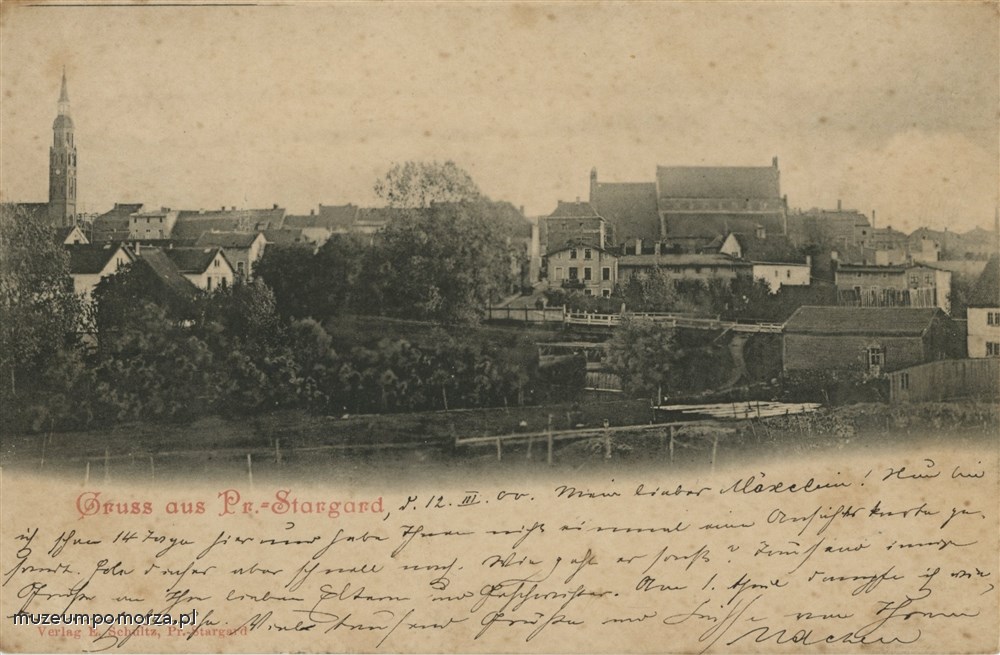 Gruss aus Pr.-Stargard, d. 12. III. 00. Mein lieber Mäxchen! Nun bin
ich schon 14 Tage hier und habe Ihnen nicht einmal eine Ansichtskarte ge-
sandt. Hole daher aber schnell nach. Wie geht es sonst? Tausend innige
Grüße an Ihre lieben Eltern und Geschwister. Am 1. April dampfe ich
Viele tausend Grüße und Küsse von Ihrem
muzeumpomorza.pl
Verlag E. Schultz, Pr.-Stargard